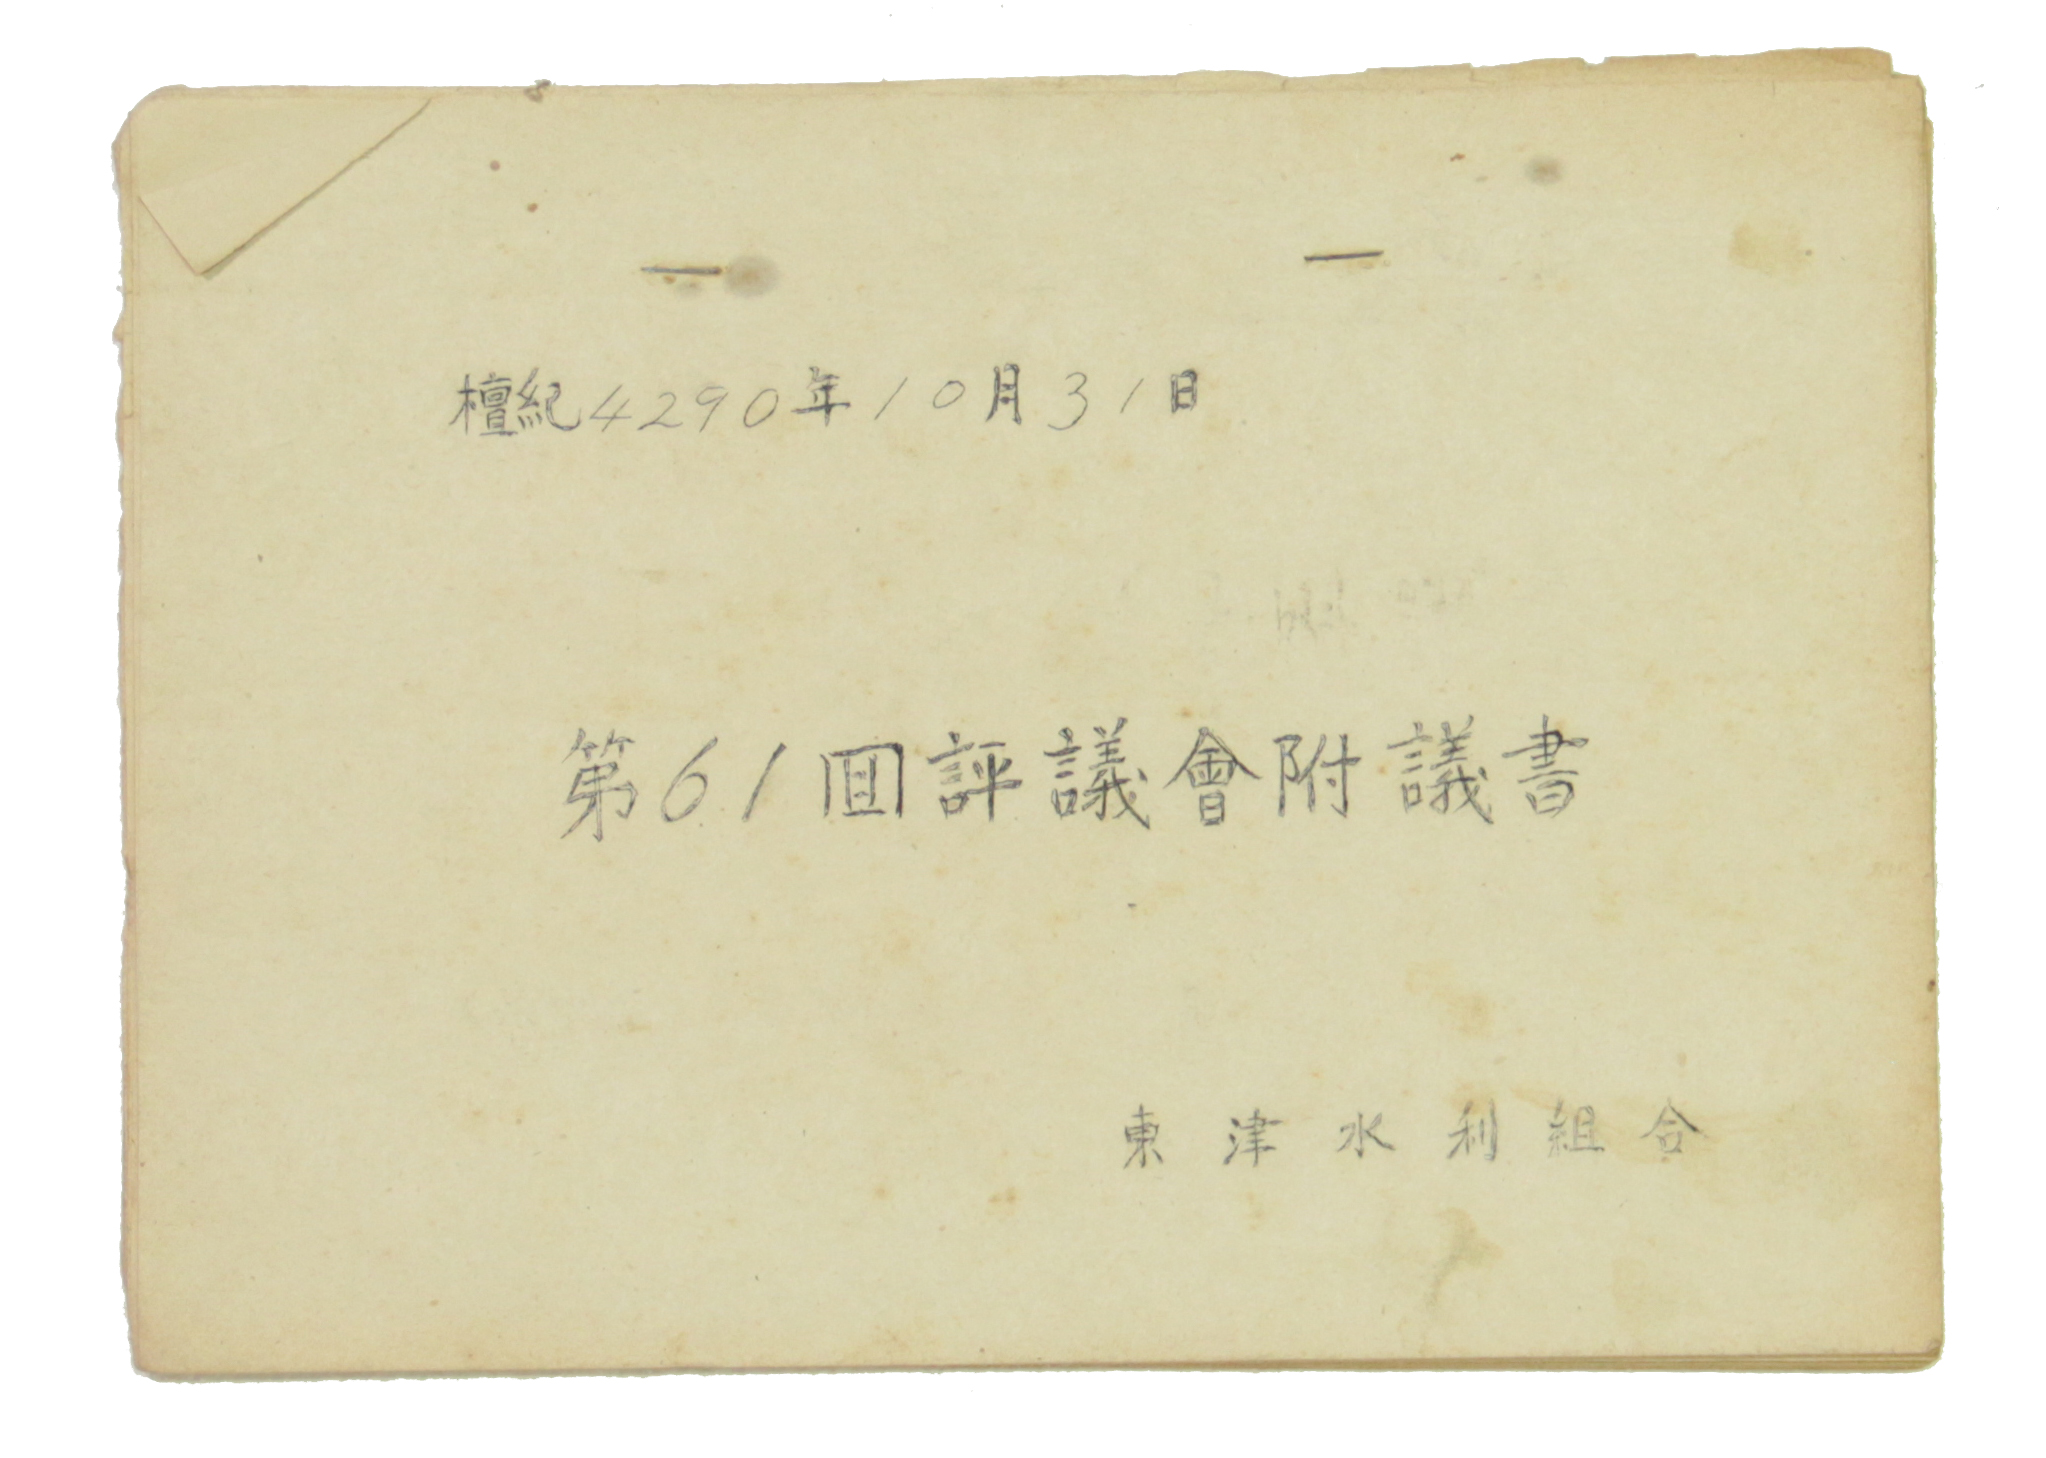 檀紀4290年10月31日
第61回評議會附議書
東津水利組合